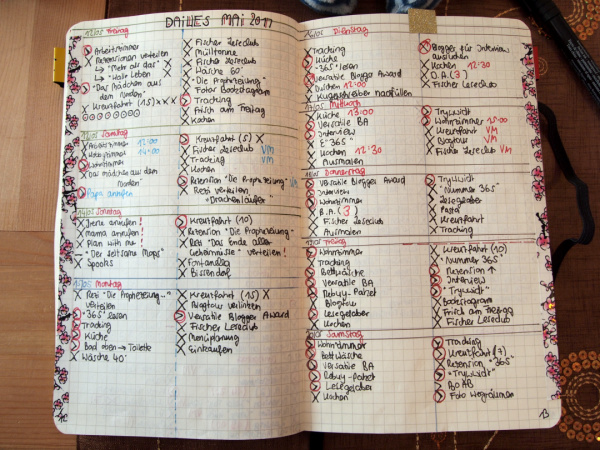 DAILIES MAI 2017
Freitag
Arbeitszimmer
Rezensionen verteilen
"Mehr als das" X
"Halbe Leben" X
"Das Mädchen aus
dem Norden"
Kreuzfahrt (15) X X X
X Fischer Leseclub
X Mülltonne
X Fischer Leseclub
X Wäsche 60°
X "Die Prophezeiung"
X Foto Bookstagram
Tracking
X Frisch am Freitag
X Kochen
Samstag
X Arbeitszimmer 12:00
X 14:00
Wohnzimmer
X Das Mädchen aus dem
Norden
Papa anrufen
Kreuzfahrt (5) X
X Fischer Leseclub VM
X Tracking VM
X Kochen
Rezension "Die Prophezeiung" VM
X Rezi verteilen
"Drachenläufer"
Sonntag
X Irene anrufen!
X Mama anrufen!
X Plan with me!
– "Der seltsame Mops"
X Spooks
Kreuzfahrt (10)
X Rezension "Die Prophezeiung"
X Rezi "Das Ende aller
Geheimnisse" verteilen!
X Fontanella
X Bissendorf
Montag
X Rezi "Die Prophezeiung.."
verteilen
"365" lesen
X Tracking
Küche
X Bad oben → Toilette
X Wäsche 40°
X Kreuzfahrt (15) X
X Blogtour verlinken
Versatile Blogger Award
X Fischer Leseclub
X Menüplanung
X Einkaufen
Dienstag
X Tracking
Küche
X "365" lesen
Versatile Blogger Award
X Duschen 12:00
X Kugelschreiber nachfüllen
Blogger für Interview
X Kochen 12:30
(3)
X Fischer Leseclub
Mittwoch
X Küche 13:00
Versatile BA
Interview
X "365"
X Kochen 12:30
X Ausmalen
"Tryllwidt"
Wohnzimmer 15:00
X Kreuzfahrt VM
X Blogtour VM
X Fischer Leseclub VM
Donnerstag
Versatile Blogger Award
Interview
Wohnzimmer
(3)
X Fischer Leseclub
X Ausmalen
"Tryllwidt"
X "Nummer 365"
X Lesegelaber
X Pasta
X Kreuzfahrt
X Tracking
Freitag
Wohnzimmer
X Tracking
X Bettwäsche
Versatile BA
Rebuy-Paket
X Blogtour
Lesegelaber
X Kochen
X Kreuzfahrt (10)
X "Nummer 365"
X Rezension ↑
Interview
"Tryllwidt"
X Bookstagram
X Frisch am Freitag
X Fischer Leseclub
Samstag
Wohnzimmer
X Bettwäsche
Versatile BA
Rebuy-Paket
Lesegelaber
X Kochen
X Tracking
Kreuzfahrt (7)
Rezension "365"
"Tryllwidt"
X Foto wegräumen
13